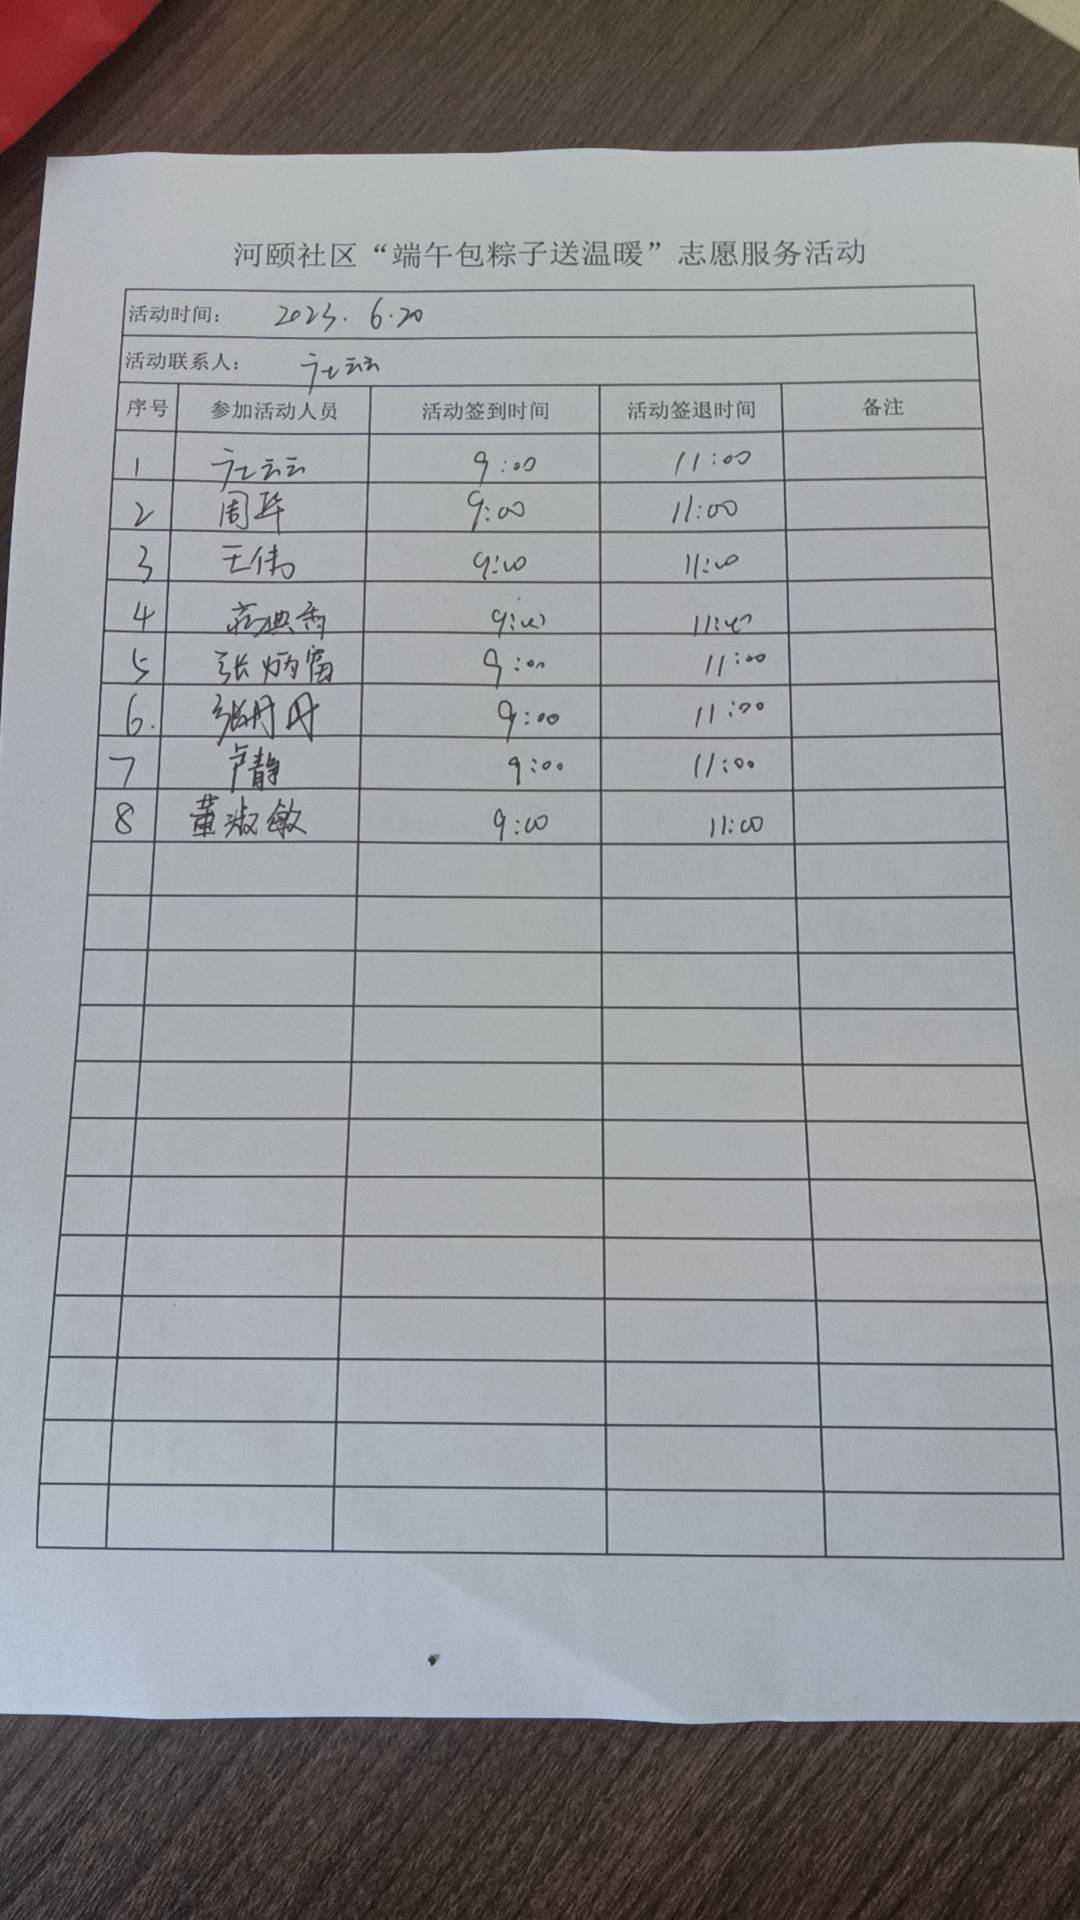 河颐社区“端午包粽子送温暖”志愿服务活动
活动时间： 2023. 6.20
活动联系人： 云云
序号 参加活动人员 活动签到时间 活动签退时间 备注
1 云云 9:00 11:00
2 周华 9:00 11:00
3 王伟 9:00 11:00
4 9:00 11:00
5 张炳富 9:00 11:00
6. 张丹丹 9:00 11:00
7 卢静 9:00 11:00
8 董淑敏 9:00 11:00